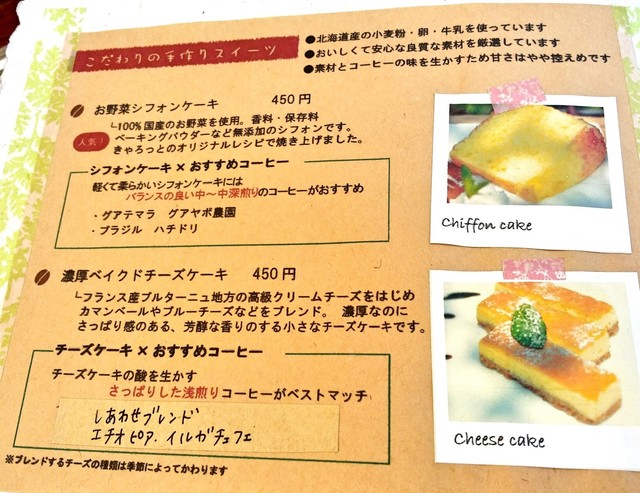 こだわりの手作りスイーツ
●北海道産の小麦粉・卵・牛乳を使っています
●おいしくて安心な良質な素材を厳選しています
●素材とコーヒーの味を生かすため甘さはやや控えめです
お野菜シフォンケーキ 450円
人気！
└100%国産のお野菜を使用。香料・保存料
ベーキングパウダーなど無添加のシフォンです。
きゃろっとのオリジナルレシピで焼き上げました。
シフォンケーキ×おすすめコーヒー
軽くて柔らかいシフォンケーキには
バランスの良い中～中深煎りのコーヒーがおすすめ
・グアテマラ グアヤボ農園
・ブラジル ハチドリ
Chiffon cake
濃厚ベイクドチーズケーキ 450円
└フランス産ブルターニュ地方の高級クリームチーズをはじめ
カマンベールやブルーチーズなどをブレンド。 濃厚なのに
さっぱり感のある、芳醇な香りのする小さなチーズケーキです。
チーズケーキ×おすすめコーヒー
チーズケーキの酸を生かす
さっぱりした浅煎りコーヒーがベストマッチ
しあわせブレンド
エチオピア. イルガチェフェ
Cheese cake
※ブレンドするチーズの種類は季節によってかわります